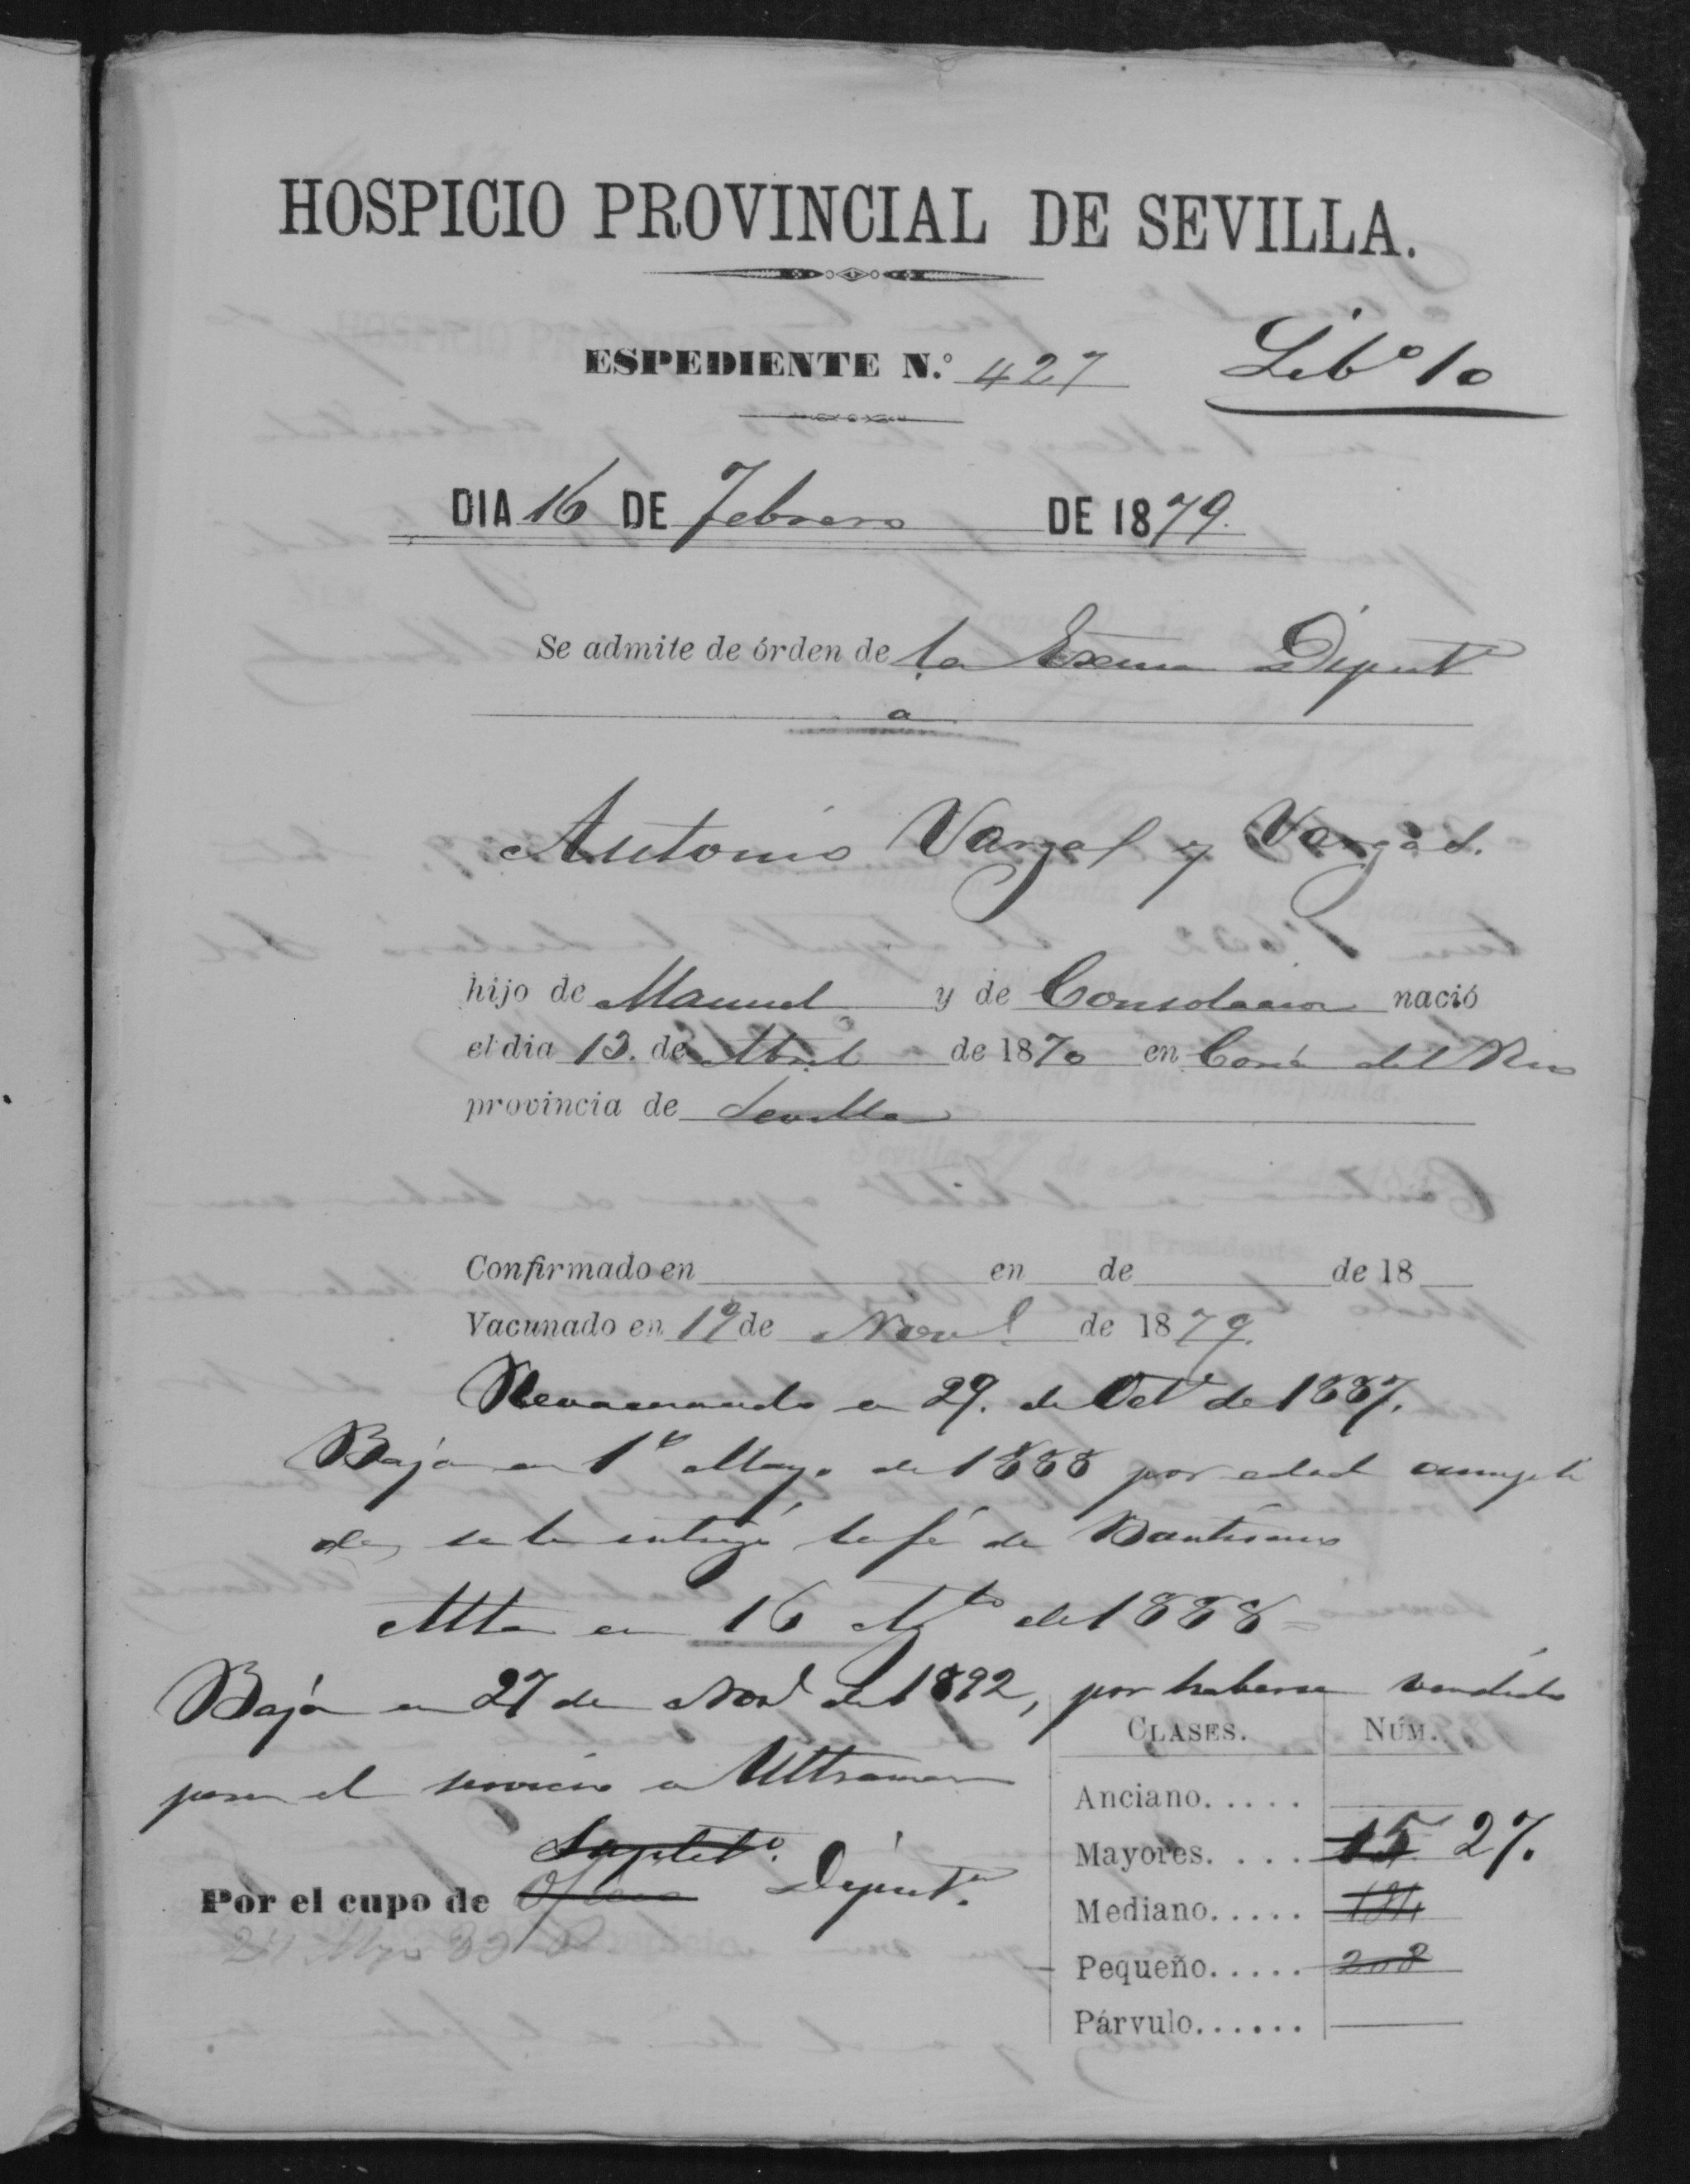 HOSPICIO PROVINCIAL DE SEVILLA.
ESPEDIENTE N.º 427 Libº 10
DIA 16 DE Febrero DE 1879.
Se admite de órden de la Exma Diputn
a
Antonio Vargas y Vargas.
hijo de Manuel y de Consolacion nació
el dia 13. de Abril de 1870 en Coria del Rio
provincia de Sevilla
Confirmado en en de de 18
Vacunado en 19 de Novl de 1879.
Revacunado en 29. de Oct de 1887.
Baja en 1º Mayo de 1888 por edad cumpli
da, se le entregó la fé de Bautismo
Alta en 16 Agto de 1888
Baja en 27 de Novl de 1892, por haberse vendido
para el servicio a Ultramar
CLASES. NÚM.
Anciano.....
Mayores.... 15 27.
Mediano..... 184
Pequeño..... 208
Párvulo......
Suplto.
Por el cupo de Diputn.